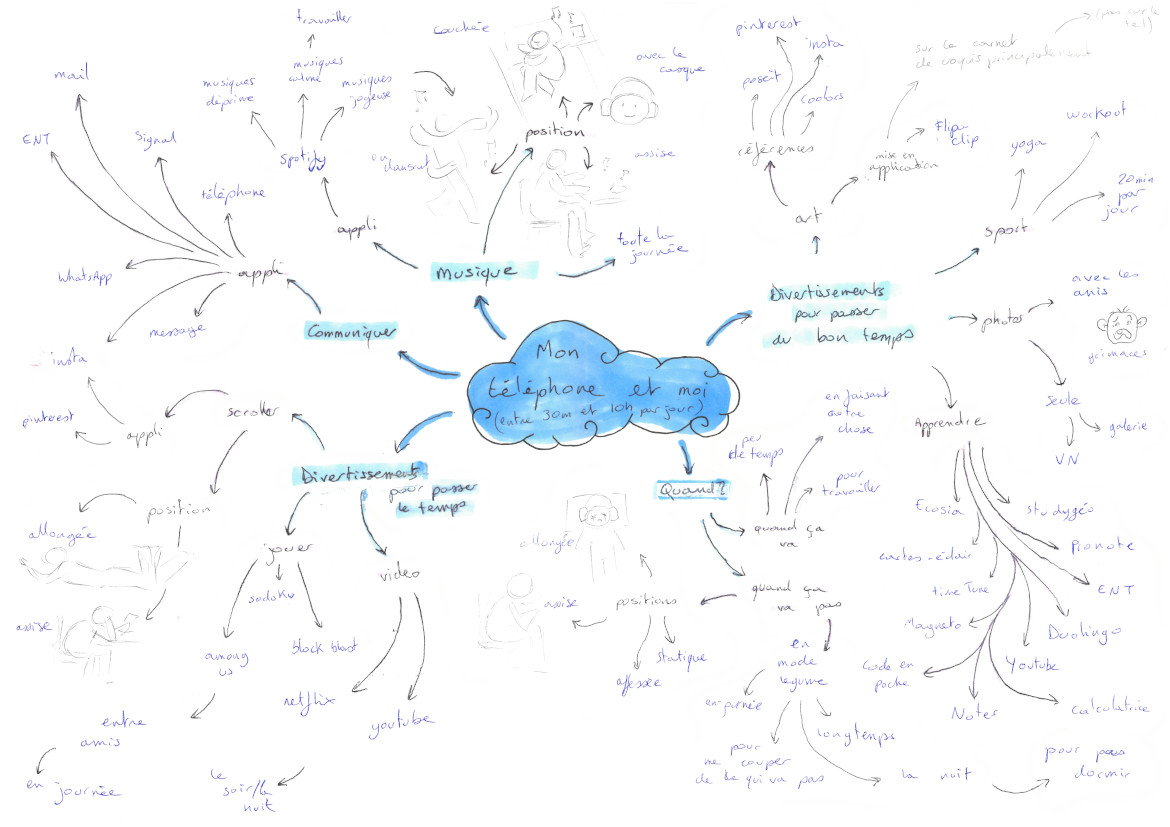 Mon
téléphone et moi
(entre 30m et 10h par jour)
Musique
appli
Spotify
musiques
déprime
musiques
calme
travailler
musiques
joyeuse
position
couchée
avec le
casque
assise
en
dansant
toute la
journée
Communiquer
appli
mail
ENT
Signal
téléphone
WhatsApp
message
insta
Divertissements
pour passer
le temps
scroller
appli
pinterest
position
allongée
assise
jouer
sudoku
among
us
entre
amis
en journée
block blast
video
netflix
youtube
le
soir/la
nuit
Divertissements
pour passer
du bon temps
art
références
poseit
pinterest
insta
coolors
mise en
application
sur le carnet
de croquis principalement
(pas sur le
tel)
Flipa
clip
sport
yoga
workout
20min
par
jour
photos
avec les
amis
grimaces
seule
galerie
VN
Apprendre
Ecosia
cartes-éclair
time Tune
Magneto
Code en
poche
Noter
studygéo
Pronote
ENT
Duolingo
Youtube
calculatrice
Quand?
quand ça
va
peu
de temps
en faisant
autre
chose
pour
travailler
quand ça
va pas
positions
allongée
assise
affessée
statique
en
mode
légume
en journée
pour
me couper
de ce qui va pas
longtemps
la nuit
pour pas
dormir